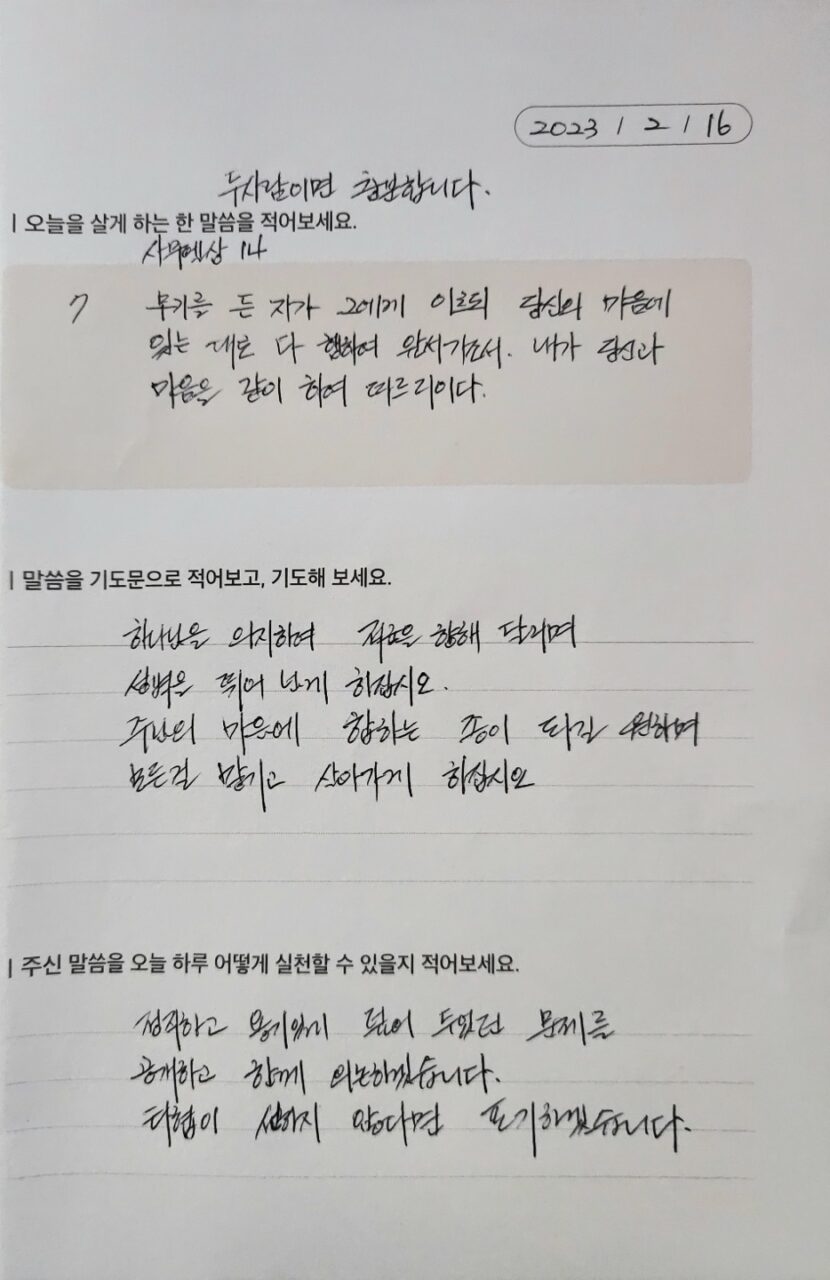 2023 / 2 / 16
두사람이면 충분합니다.
| 오늘을 살게 하는 한 말씀을 적어보세요.
사무엘상 14
7 무기를 든 자가 그에게 이르되 당신의 마음에
있는 대로 다 행하여 앞서가소서. 내가 당신과
마음을 같이 하여 따르리이다.
| 말씀을 기도문으로 적어보고, 기도해 보세요.
하나님을 의지하여 적군을 향해 달리며
성벽을 뛰어 넘게 하십시오.
주님의 마음에 합하는 종이 되길 원하며
모든걸 맡기고 살아가게 하십시오
| 주신 말씀을 오늘 하루 어떻게 실천할 수 있을지 적어보세요.
정직하고 용기있게 덮어 두었던 문제를
공개하고 함께 의논하겠습니다.
타협이 선하지 않다면 포기하겠습니다.